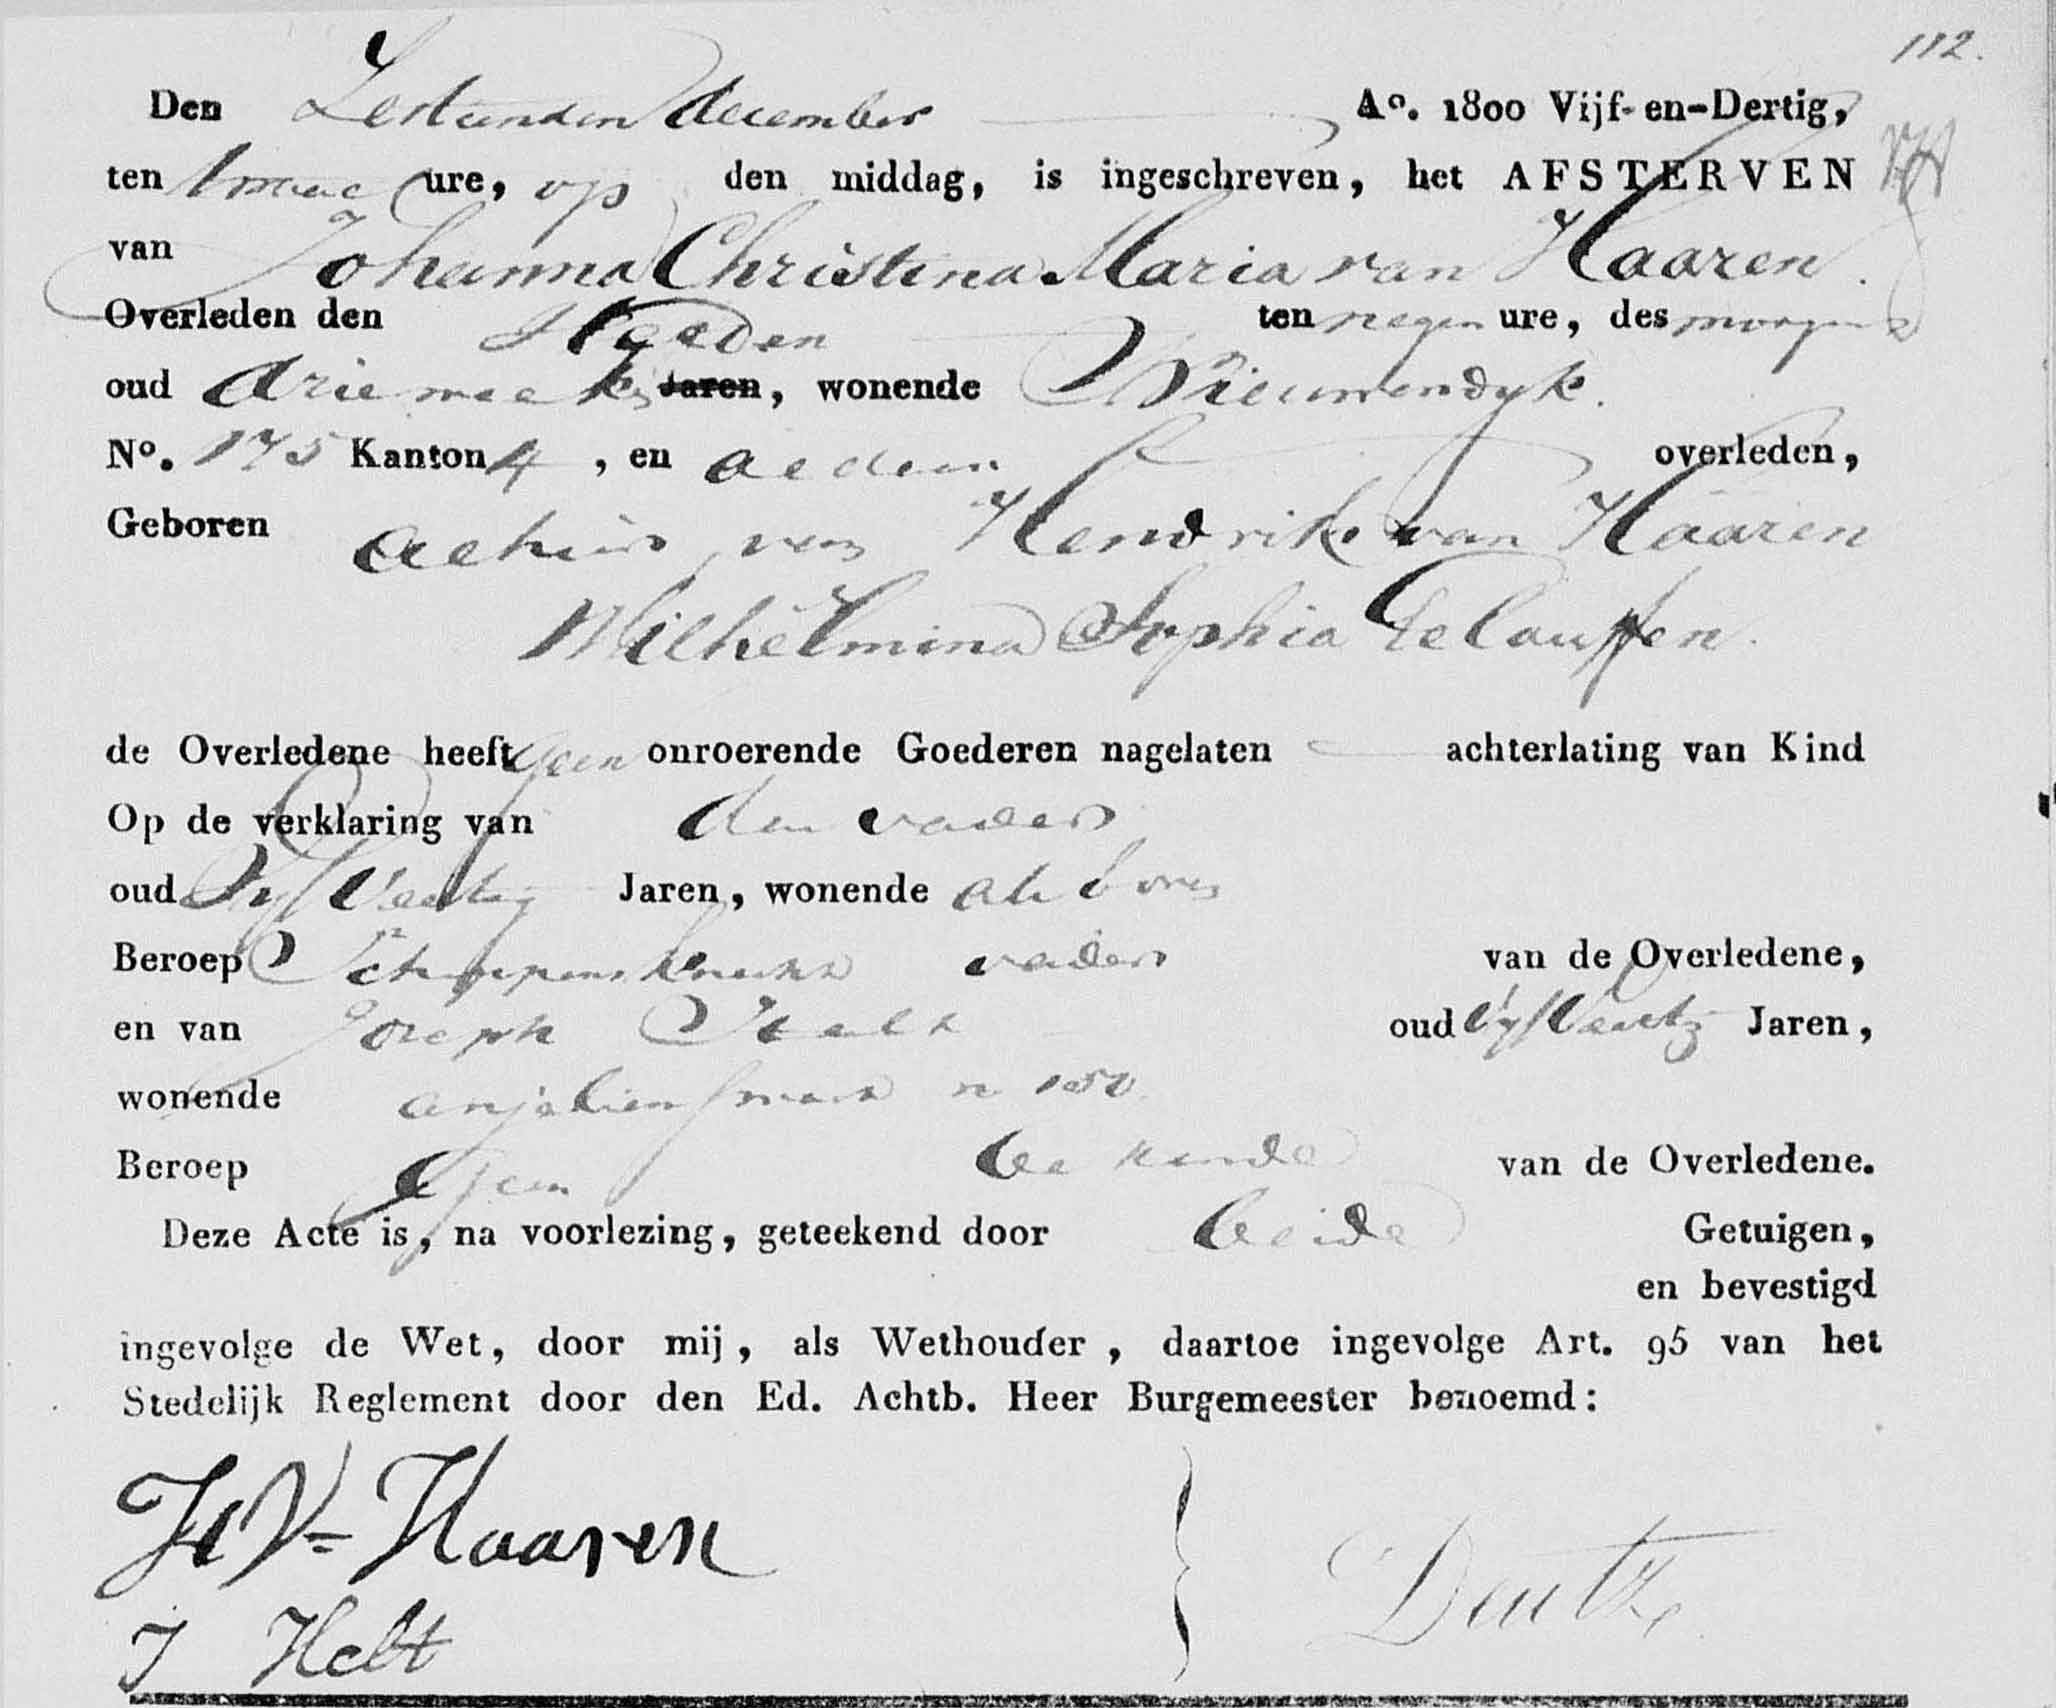 112.
Den Zestienden december Ao. 1800 Vijf-en-Dertig,
ten twee ure, op den middag, is ingeschreven, het AFSTERVEN
van Johanna Christina Maria van Haaren.
Overleden den Heeden ten negen ure, des morgens
oud drie weeken Jaren, wonende Nieuwendyk.
No. 175 Kanton 4, en aldaar overleden,
Geboren alhier van Hendrik van Haaren
Wilhelmina Sophia
de Overledene heeft Geen onroerende Goederen nagelaten achterlating van Kind
Op de verklaring van den vader
oud Vyf Veertig Jaren, wonende als boven
Beroep vader van de Overledene,
en van Joseph oud Vyf Veertig Jaren,
wonende
Beroep Geen bekende van de Overledene.
Deze Acte is, na voorlezing, geteekend door beide Getuigen,
en bevestigd
ingevolge de Wet, door mij, als Wethouder, daartoe ingevolge Art. 95 van het
Stedelijk Reglement door den Ed. Achtb. Heer Burgemeester benoemd:
H V= Haaren
J Helt